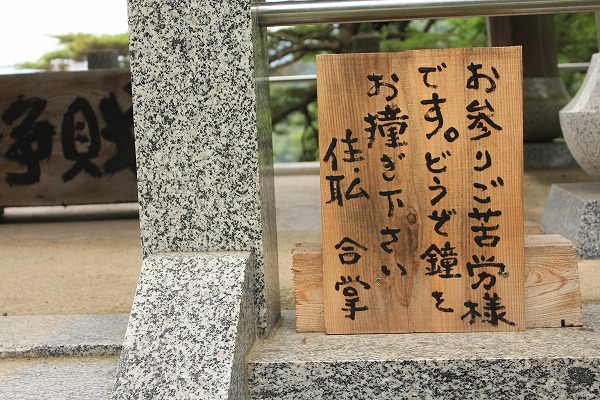 お参りご苦労様
です。どうぞ鐘を
お撞き下さい
住・私 合掌
浄財